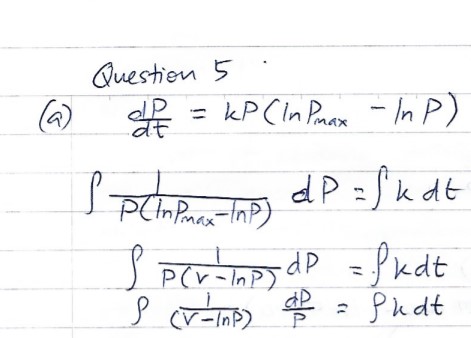 Question 5
(a) dP/dt = kP(lnPmax - lnP)
∫ 1/P(lnPmax-lnP) dP = ∫ k dt
∫ 1/P(v-lnP) dP = ∫kdt
∫ 1/(v-lnP) dP/P = ∫kdt